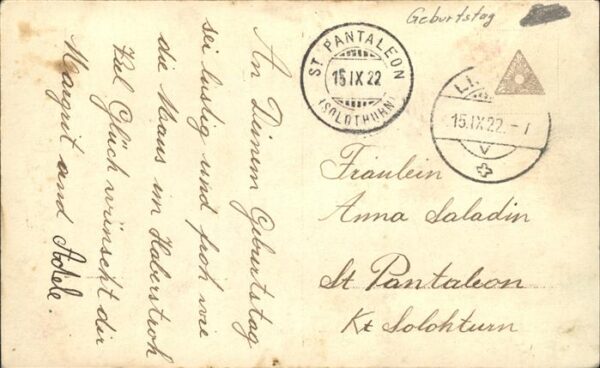 Geburtstag
ST PANTALEON
15 IX 22
(SOLOTHURN)
15.IX.22.-7
V
An Dinem Geburtstag
sei lustig und froh wie
die Maus im Haberstroh
Viel Glück wünscht dir
Margrit und Adele.
Fräulein
Anna Saladin
St Pantaleon
Kt Solohturn